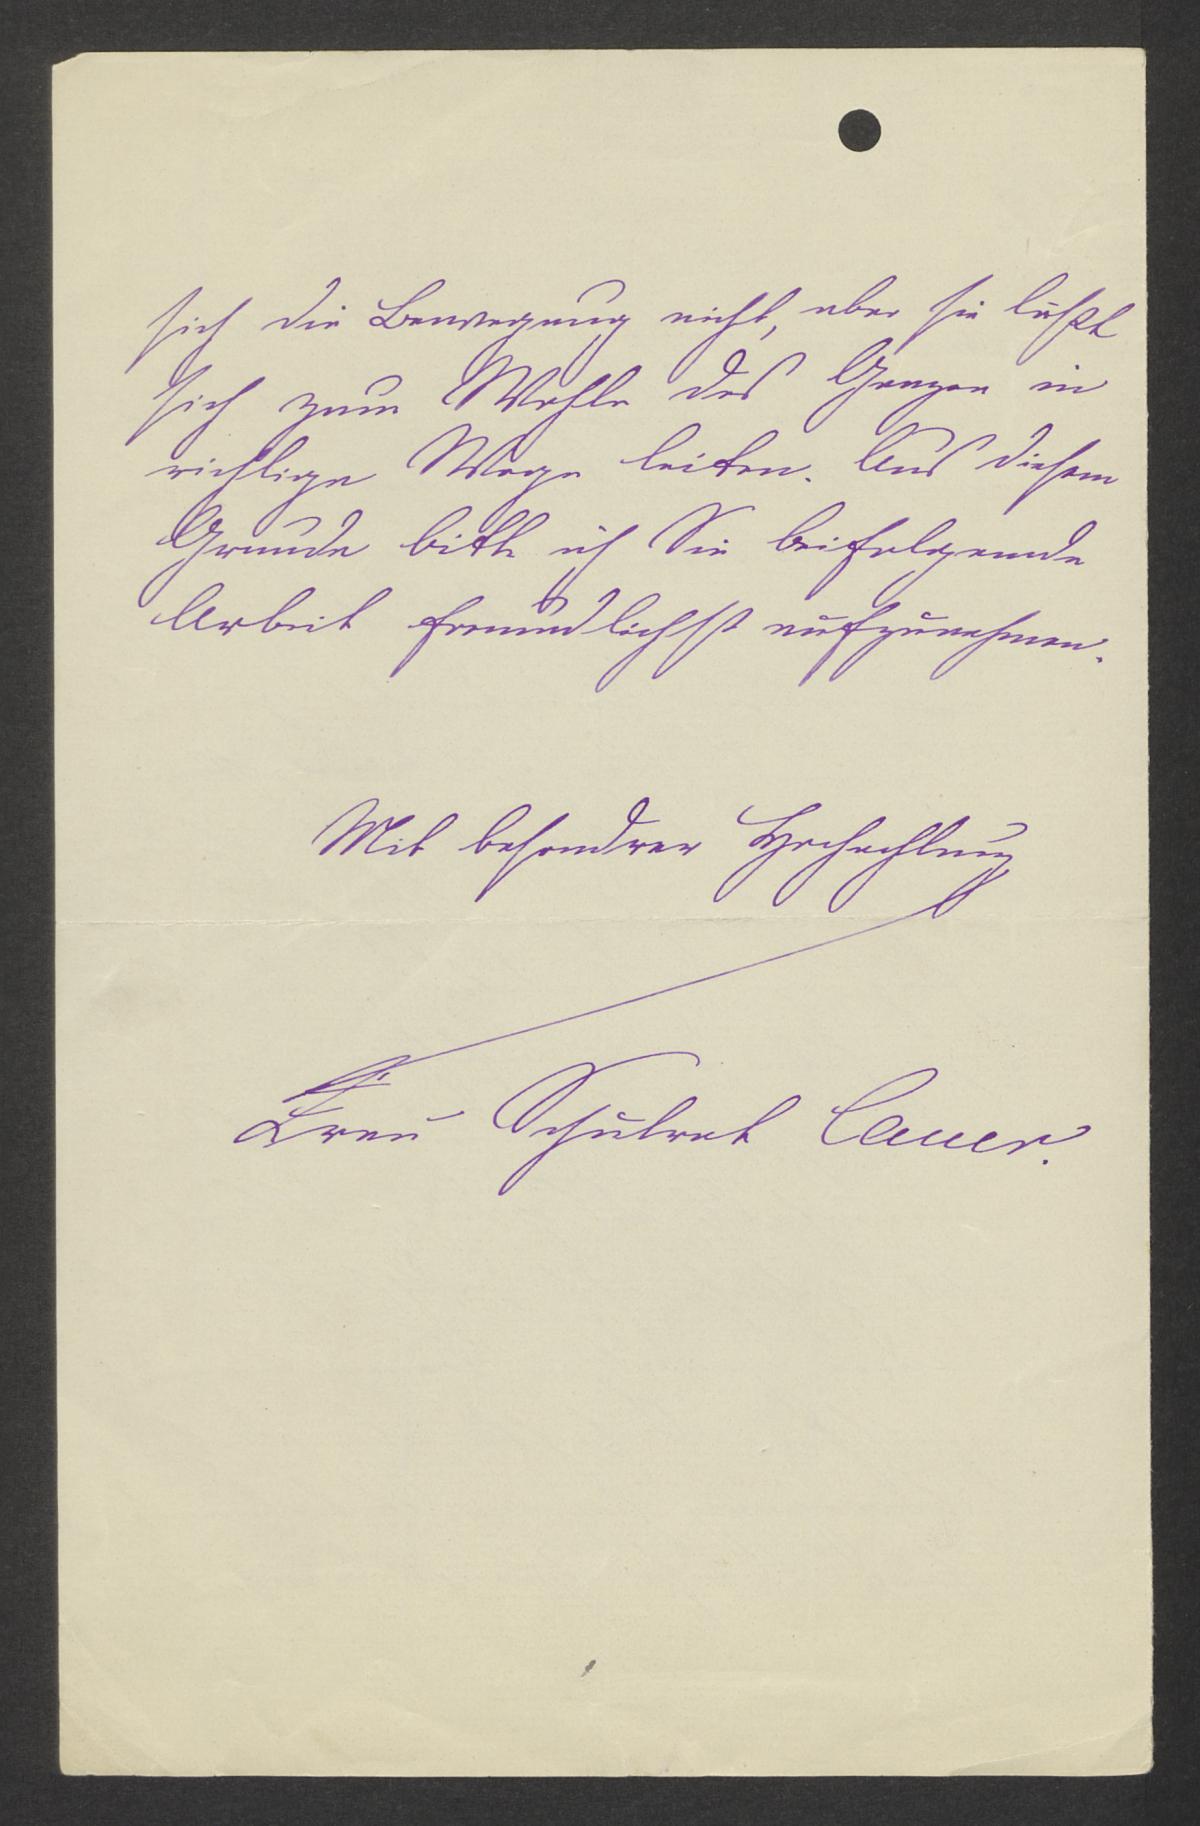 sich die Bewegung nicht, aber sie läßt
sich zum Wohle des Ganzen in
richtige Wege leiten. Aus diesem
Grunde bitte ich Sie beifolgende
Arbeit freundlichst aufzunehmen.
Mit besondrer Hochachtung
Frau Schulrat Cauer.